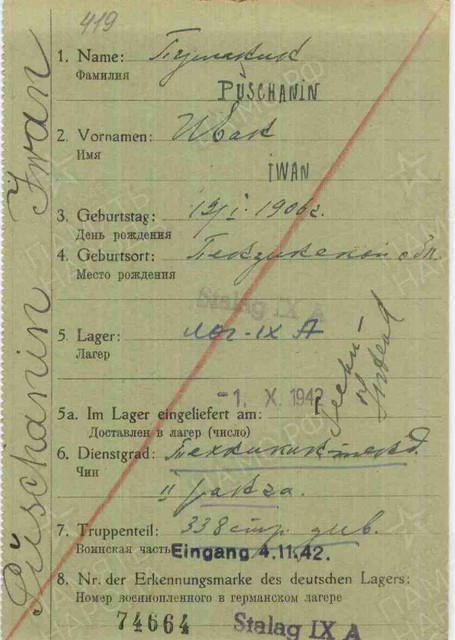 419
Püschanin Iwan
1. Name:
Фамилия
PÜSCHANIN
2. Vornamen: Иван
Имя
IWAN
3. Geburtstag: 12/I. 1906г.
День рождения
4. Geburtsort: Пензинской обл.
Место рождения
Stalag IX A
5. Lager: лаг-IX А
Лагерь
-1. X. 1942
5a. Im Lager eingeliefert am:
Доставлен в лагерь (число)
6. Dienstgrad:
Чин
II ранга.
7. Truppenteil: 338 стр. див.
Воинская часть Eingang 4.11.42.
8. Nr. der Erkennungsmarke des deutschen Lagers:
Номер военнопленного в германском лагере
74664 Stalag IX A